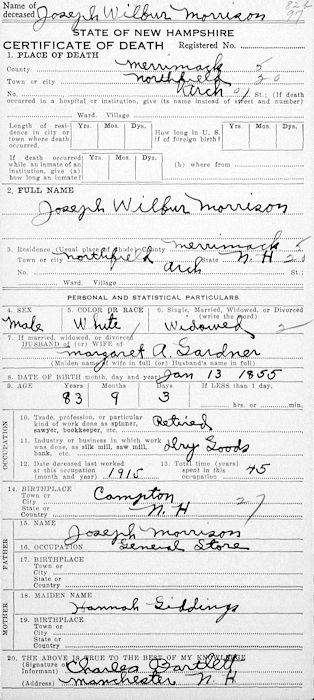 Name of deceased Joseph Wilbur Morrison
STATE OF NEW HAMPSHIRE
CERTIFICATE OF DEATH Registered No.
1. PLACE OF DEATH
County Merrimack 5
Town or city Northfield 20
No. Arch St.; (If death
occurred in a hospital or institution, give its name instead of street and number)
Ward. Village
Length of residence in city or town where death occurred. Yrs. Mos. Dys. How long in U. S. if of foreign birth? Yrs. Mos. Dys.
If death occurred while an inmate of an institution, give (a) how long an inmate? (b) where from
2. FULL NAME
Joseph Wilbur Morrison
3. Residence (Usual place of abode) County Merrimack 5
Town or city Northfield State N. H 20
No. Arch St.;
Ward. Village
PERSONAL AND STATISTICAL PARTICULARS
4. SEX 5. COLOR OR RACE 6. Single, Married, Widowed, or Divorced (write the word)
Male White Widowed 2
7. If married, widowed, or divorced
HUSBAND of (or) WIFE of
Margaret A. Gardner
(Maiden name of wife in full) (Husband's name in full)
8. DATE OF BIRTH month, day and year Jan 13 1855
9. AGE Years Months Days If LESS than 1 day,
83 9 3 hrs. or min.
OCCUPATION
10. Trade, profession, or particular kind of work done as spinner, sawyer, bookkeeper, etc. Retired
11. Industry or business in which work was done, as silk mill, saw mill, bank, etc. Dry Goods
12. Date deceased last worked at this occupation (month and year) 1915 13. Total time (years) spent in this occupation 45
14. BIRTHPLACE
Town or City Campton
State or Country N H 27
FATHER
15. NAME Joseph Morrison
16. OCCUPATION General Store
17. BIRTHPLACE
Town or City
State or Country
MOTHER
18. MAIDEN NAME
Hannah Giddings
19. BIRTHPLACE
Town or City
State or Country
20. THE ABOVE IS TRUE TO THE BEST OF MY KNOWLEDGE
(Signature of Informant) Charles Bartlett
(Address) Manchester N. H